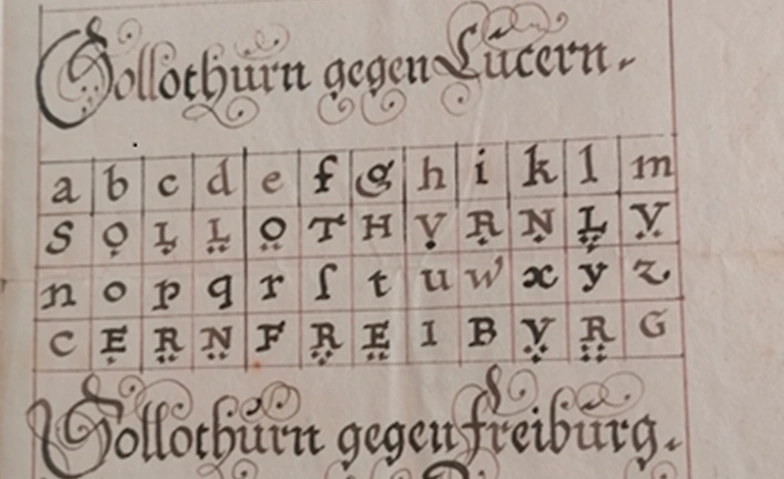 Sollothurn gegen Lucern.
a b c d e f g h i k l m
S Ọ Ḷ L̤ O̤ T H Ṿ Ṛ Ṇ L̤̣ V̤
n o p q r ſ t u w x y z
C Ẹ R̤ N̤ F R̤̣ E̤ I B V̤̣ R̤̤ G
Sollothurn gegen freiburg.